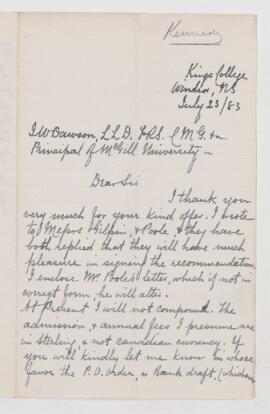 Kennedy
Kings College
Windsor, NS
July 23/83
J W Dawson, LLD. FRS. CMG. &c
Principal of McGill University —
Dear Sir
I thank you
very much for your kind offer. I wrote
to Messrs Gilpin, & Poole, & they have
both replied that they will have much
pleasure in signing the recommendation.
I inclose Mr. Poole's letter, which if not in
correct form, he will alter.
At Present I will not compound. The
admission, & annual fees I presume are
in Sterling, & not Canadian currency. If
you will kindly let me know in whose
favor the P.O. order, or Bank draft, (whichever